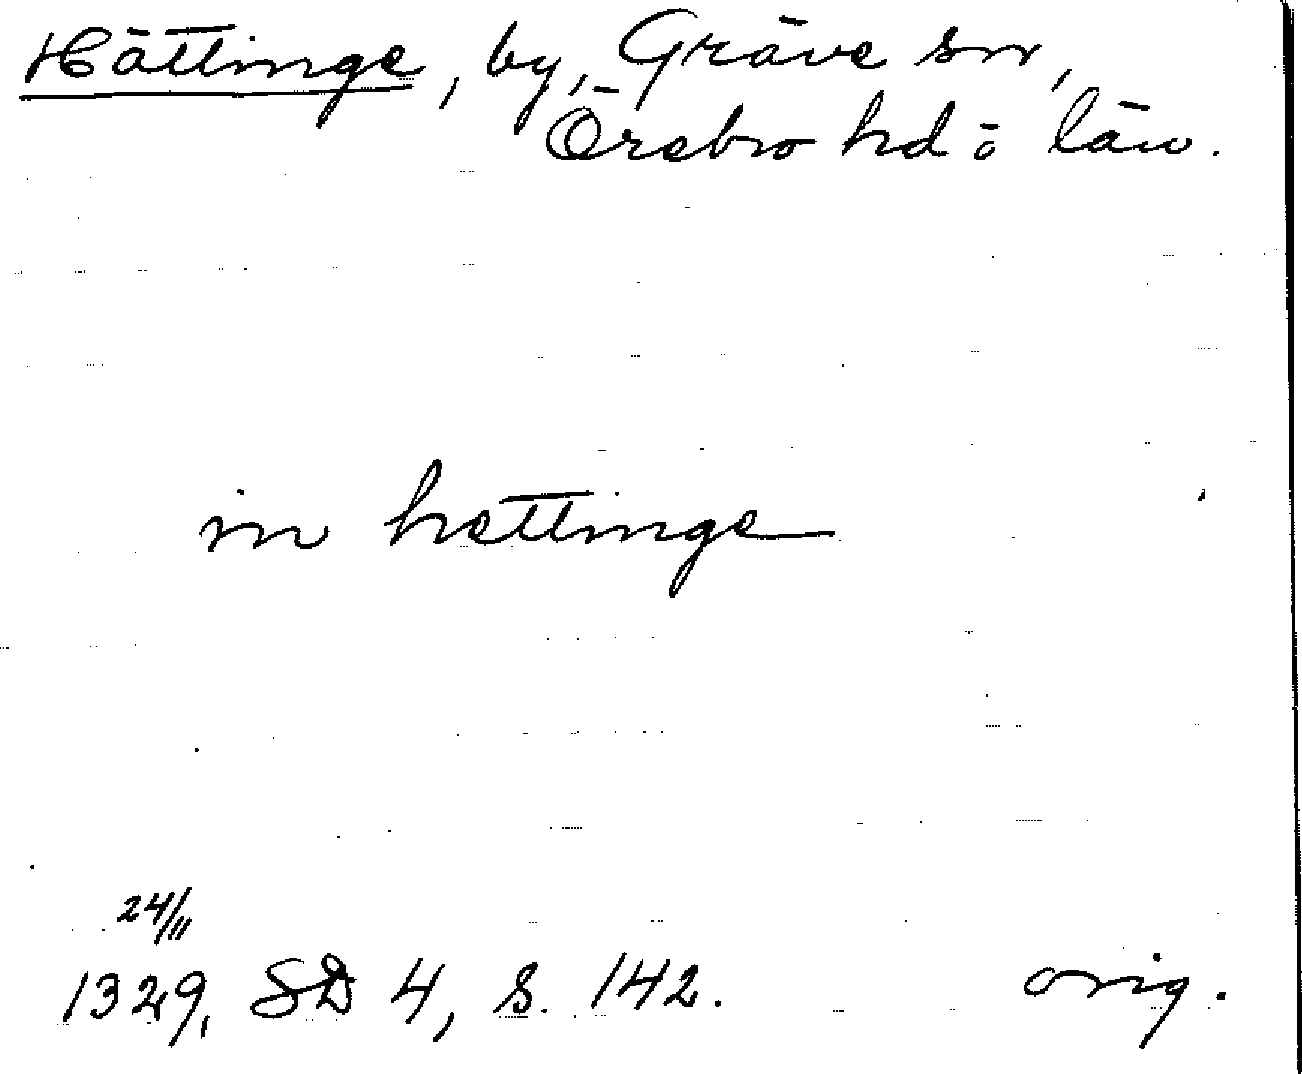 Hättinge, by, Gräve sn,
Örebro hd o län.
in hættinge
24/11
1329, SD 4, s. 142. orig.